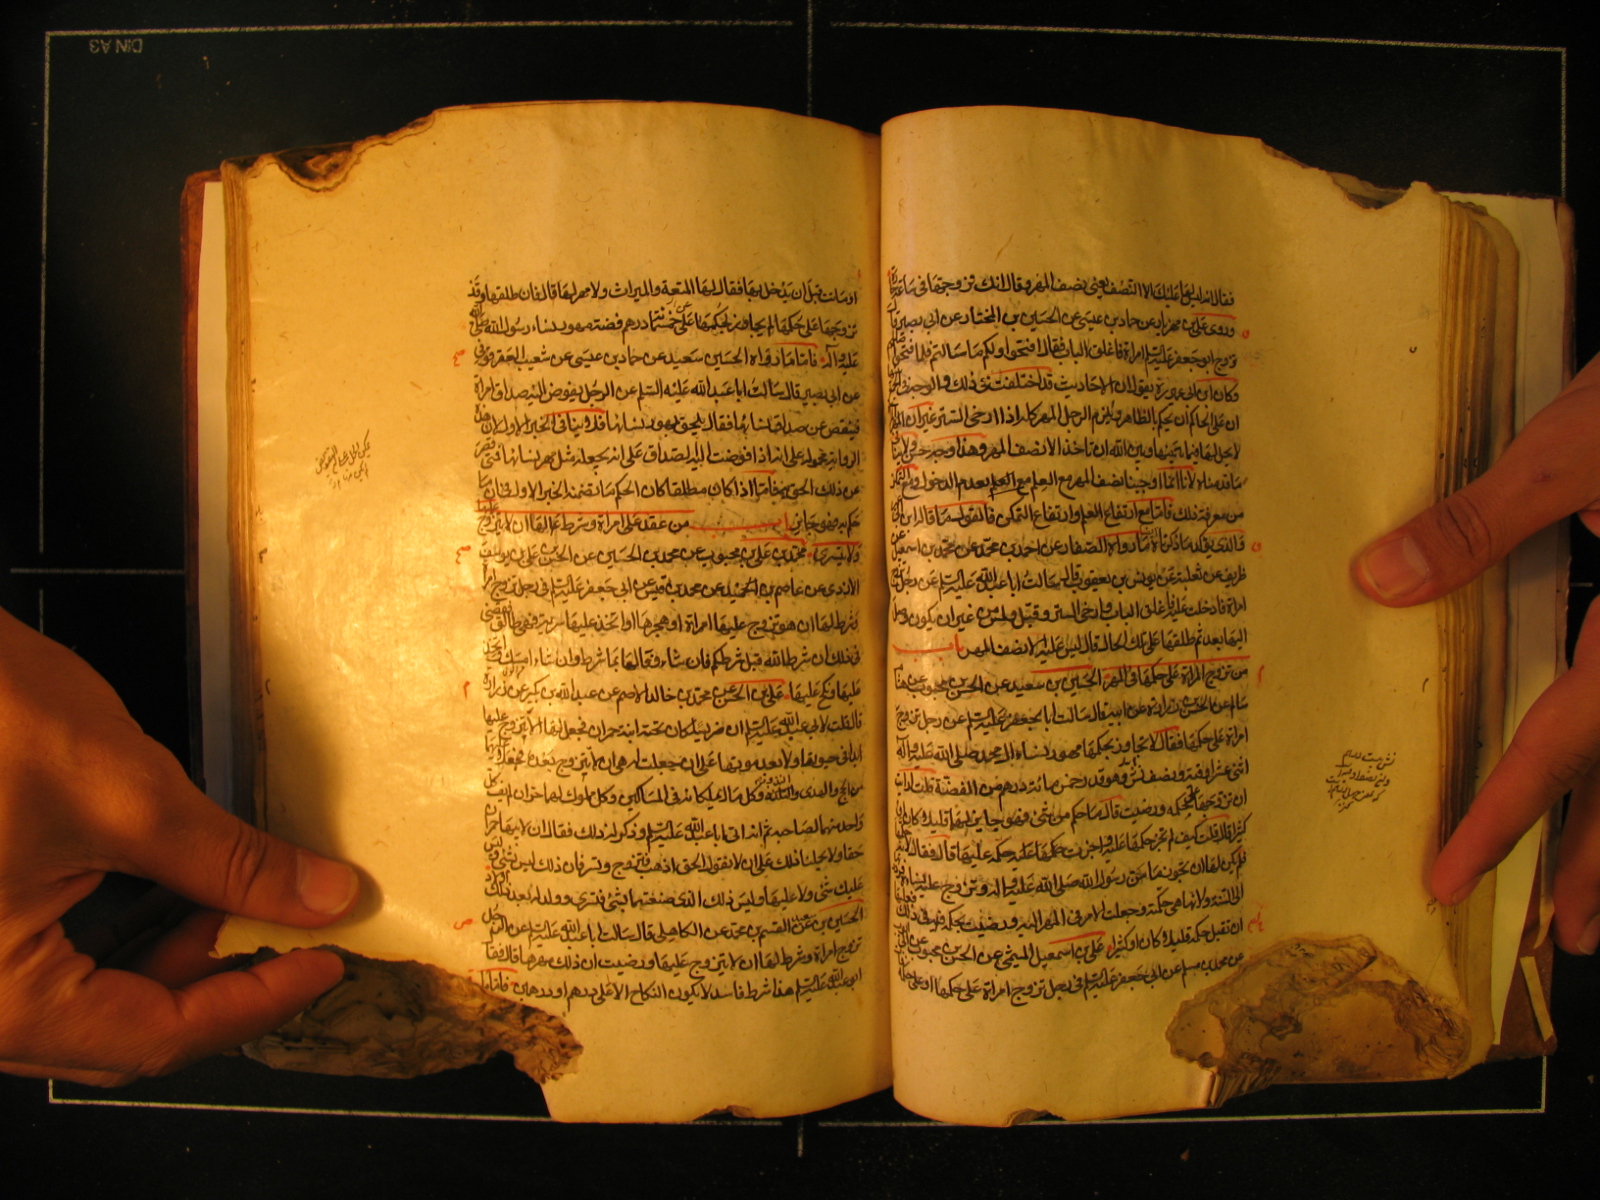 فقال الله ليس لها عليك الا النصف يعني نصف المهر وقال انك تزوجتها في ساعة حارة
وروى علي بن مهزيار عن حماد بن عيسى عن الحسين بن المختار عن ابي بصير قال
تزوج ابو جعفر عليه السلم امراة فاغلق الباب فقال افتحوا ولكم ما سالتم فلما فتحوا صالحهم
وكان ابن ابي عمير ره يقول ان الاحاديث قد اختلفت في ذلك والوجه في الجمع
ان على الحاكم ان يحكم بالظاهر ويلزم الرجل المهر كله اذا ارخى الستر غير ان المراة
لا يحل لها فيما بينها وبين الله ان تاخذ الا نصف المهر وهذا وجه حسن ولا ينافي
ما قدمناه لانا انما اوجبنا نصف المهر مع العلم بعدم الدخول ومع التمكن
من معرفة ذلك فاما مع ارتفاع العلم وارتفاع التمكن فالقول ما قاله ابن ابي عمير
والذي يؤكد ما ذكرناه ما رواه الصفار عن احمد بن محمد عن محمد بن اسمعيل عن
ظريف عن ثعلبة عن يونس بن يعقوب قال سالت ابا عبد الله عليه السلم عن رجل تزوج
امراة فادخلت عليه فاغلق الباب وارخى الستر وقبل ولمس من غير ان يكون وصل
اليها بعد ثم طلقها على تلك الحال قال ليس عليه الا نصف المهر باب
من تزوج المراة على حكمها في المهر الحسين بن سعيد عن الحسن بن محبوب عن هشام بن
سالم عن الحسن بن زرارة عن ابيه قال سالت ابا جعفر عليه السلم عن رجل تزوج
امراة على حكمها فقال لا تتجاوز بحكمها مهور نساء ال محمد صلى الله عليه واله
اثنتي عشرة اوقية ونصف نش وهو قدر خمس مائة درهم من الفضة قلت ارايت
ان تزوجها على حكمه ورضيت قال ما حكم من شئ فهو جايز لها قليلا كان او
كثيرا قال قلت كيف لم تجز حكمها عليه واجزت حكمه عليها قال فقال لانه حكمها
فلم يكن لها ان تجوز ما سن رسول الله صلى الله عليه واله وتزوج عليه نساءه فرددتها
الى السنة ولانها هي حكمته وجعلت الامر في المهر اليه ورضيت بحكمه في ذلك فعليها
ان تقبل حكمه قليلا كان او كثيرا علي بن اسمعيل الميثمي عن الحسن بن محبوب عن ابي ايوب
عن محمد بن مسلم عن ابي جعفر عليه السلم في رجل تزوج امراة على حكمها او على حكمه
او ماتت قبل ان يدخل بها فقال لها المتعة والميراث ولا مهر لها قال فان طلقها وقد
تزوجها على حكمها لم يجاوز بحكمها على خمسمائة درهم فضة مهور نساء رسول الله صلى الله
عليه واله فاما ما رواه الحسين بن سعيد عن حماد بن عيسى عن شعيب العقرقوفي
عن ابي بصير قال سالت ابا عبد الله عليه السلم عن الرجل يفوض اليه صداق امراة
فينقص عن صداق نسائها فقال يلحق بمهور نسائها فلا ينافي الخبر الاول لان هذه
الرواية محمولة على انه اذا فوضت اليه الصداق على ان يجعله مثل مهر نسائها فمتى قصر
عن ذلك الحق به فاما اذا كان مطلقا كان الحكم ما تضمنه الخبر الاول في ان ما
حكم به فهو جايز باب من عقد على امراة وشرط لها ان لا يتزوج عليها
ولا يتسرى محمد بن علي بن محبوب عن محمد بن الحسين عن الحسن بن علي بن يوسف
الازدي عن عاصم بن الحميد عن محمد بن قيس عن ابي جعفر عليه السلم في رجل تزوج امراة
وشرط لها ان هو تزوج عليها امراة او هجرها او اتخذ عليها سرية فهي طالق فقضى
في ذلك ان شرط الله قبل شرطكم فان شاء وفى لها بما شرط وان شاء امسكها واتخذ
عليها ونكح عليها علي بن الحسن عن محمد بن خالد الاصم عن عبد الله بن بكير عن زرارة
قال قلت لابي عبد الله عليه السلم ان ضريسا كان تحته ابنة حمران فجعل لها الا يتزوج عليها
ابدا في حيوتها ولا بعد موتها على ان جعلت له هي ان لا تتزوج بعده فجعلا عليهما
من الحج والهدي والنذور وكل مال يملكانه في المساكين وكل مملوك لهما حر ان لم يف كل
واحد منهما لصاحبه ثم انه اتى ابا عبد الله عليه السلم وذكر له ذلك فقال ان لابيها حمران
حقا ولا يحملنا ذلك على ان لا نقول الحق اذهب فتزوج وتسر فان ذلك ليس بشئ وليس
عليك شئ ولا عليها وليس ذلك الذي صنعتما بشئ فتسرى وولد له بعد ذلك اولاد
الحسين بن سعيد عن القسم بن محمد عن الكاهلي قال سالت ابا عبد الله عليه السلم عن الرجل
تزوج امراة وشرط لها ان لا يتزوج عليها ورضيت ان ذلك مهرها قال فقال
ابو عبد الله عليه السلم هذا شرط فاسد لا يكون النكاح الا على درهم او درهمين فاما ما
DIN A3